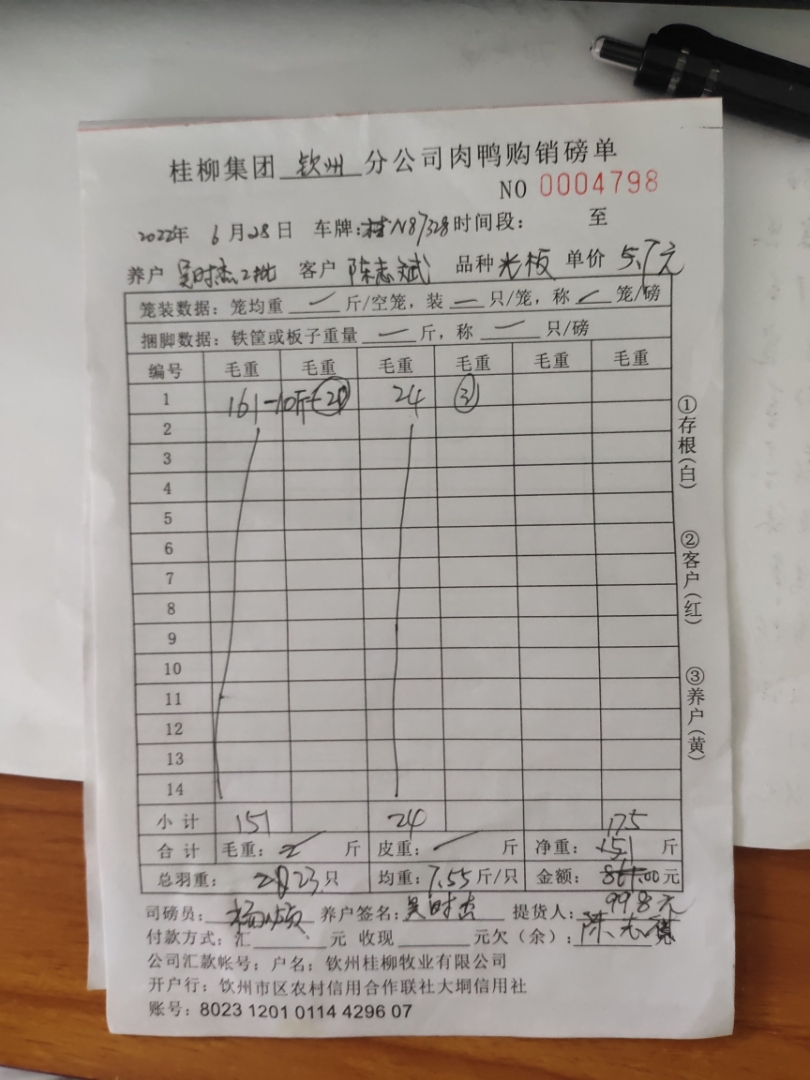 桂柳集团 钦州 分公司肉鸭购销磅单
NO 0004798
2022年 6月28日 车牌:桂N87328 时间段: 至
养户 吴时杰2批 客户 陈志斌 品种 光板 单价 5.7元
笼装数据:笼均重 斤/空笼,装 只/笼,称 笼/磅
捆脚数据:铁筐或板子重量 斤,称 只/磅
编号 毛重 毛重 毛重 毛重 毛重 毛重
1 161-10斤 20 24 3
2
3
4
5
6
7
8
9
10
11
12
13
14
小计 151 24 175
合计 毛重: 斤 皮重: 斤 净重: 151 斤
总羽重: 23只 均重: 7.55斤/只 金额: 861.00元
998元
司磅员: 养户签名:吴时杰 提货人:
付款方式:汇 元 收现 元欠(余):
公司汇款帐号:户名:钦州桂柳牧业有限公司
开户行:钦州市区农村信用合作联社大垌信用社
账号:8023 1201 0114 4296 07
①存根(白)
②客户(红)
③养户(黄)